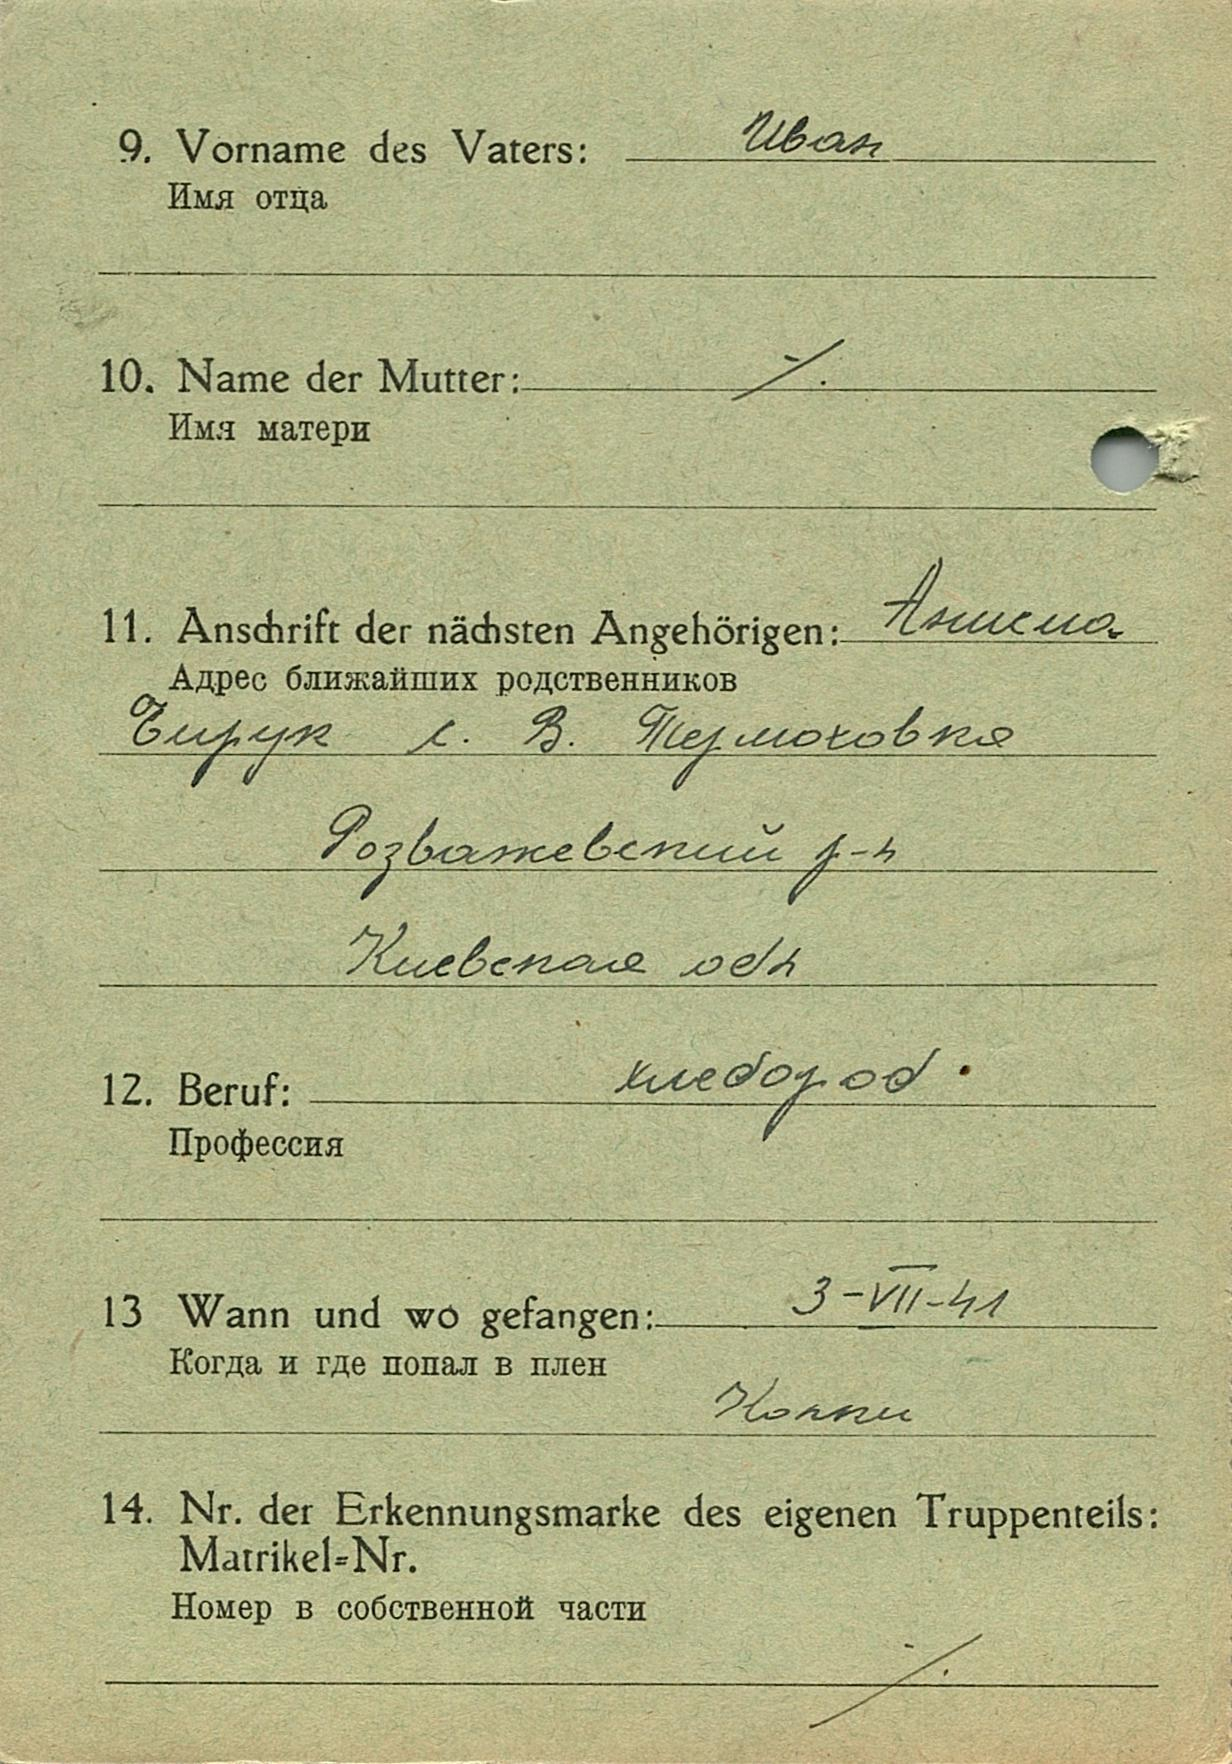 9. Vorname des Vaters: Иван
Имя отца
10. Name der Mutter: ./.
Имя матери
11. Anschrift der nächsten Angehörigen:
Адрес ближайших родственников
с. В. Термоховка
Розважевский р-н
Киевская обл
12. Beruf: хлебороб
Профессия
13 Wann und wo gefangen: 3-VII-41
Когда и где попал в плен
14. Nr. der Erkennungsmarke des eigenen Truppenteils:
Matrikel=Nr.
Номер в собственной части
./.